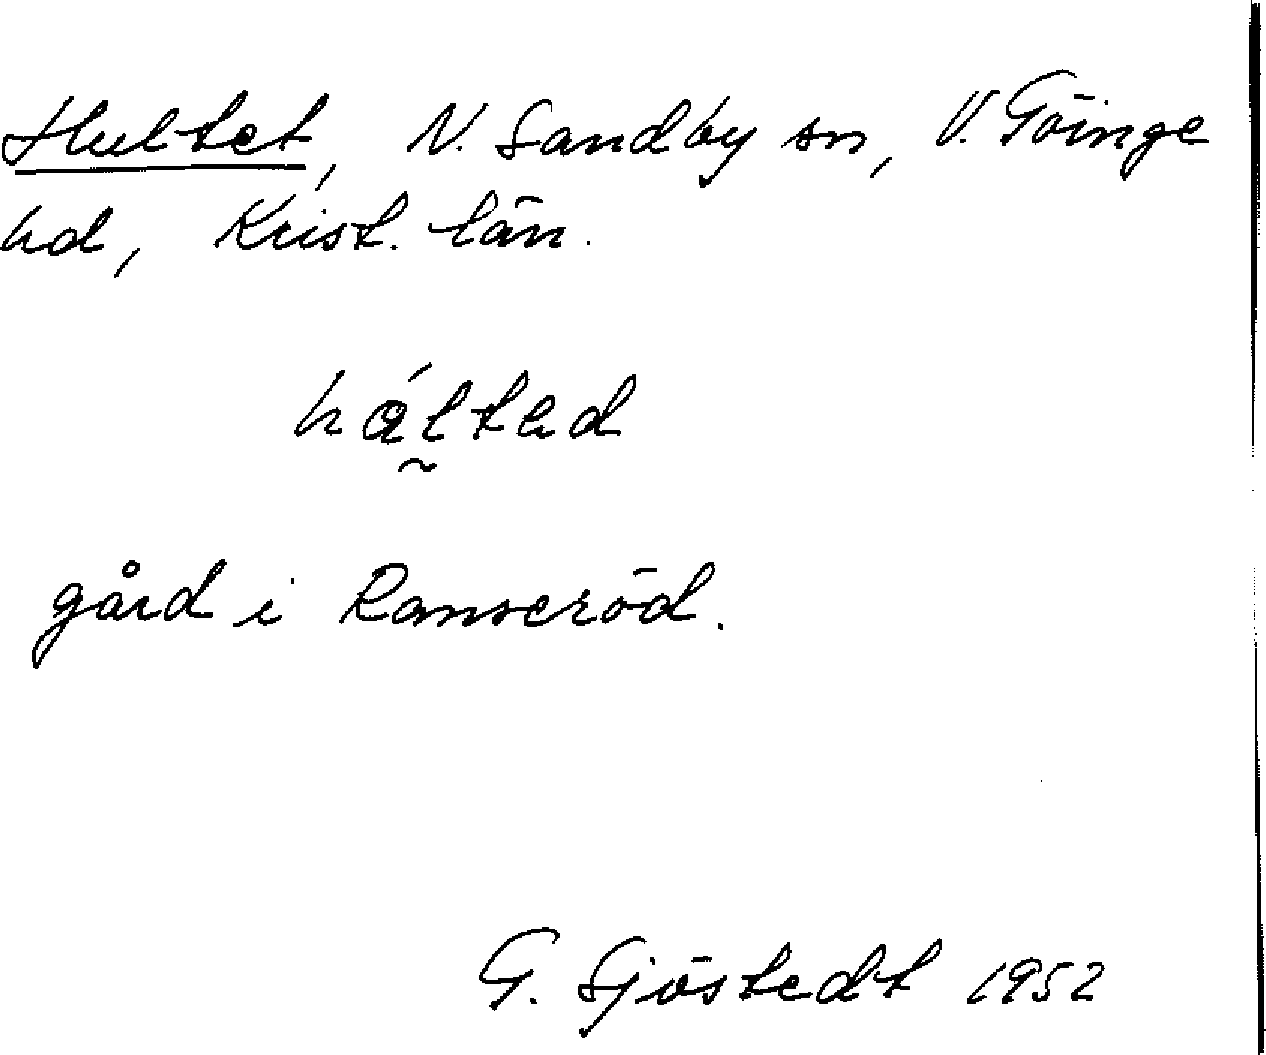 Hultet, N. Sandby sn, V. Göinge
hd, Krist. län.
gård i Ranseröd.
G. Sjöstedt 1952